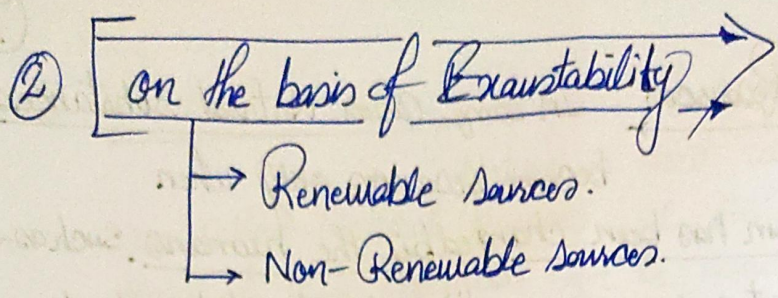 ② on the basis of Exaustability
→ Renewable sources.
→ Non-Renewable sources.